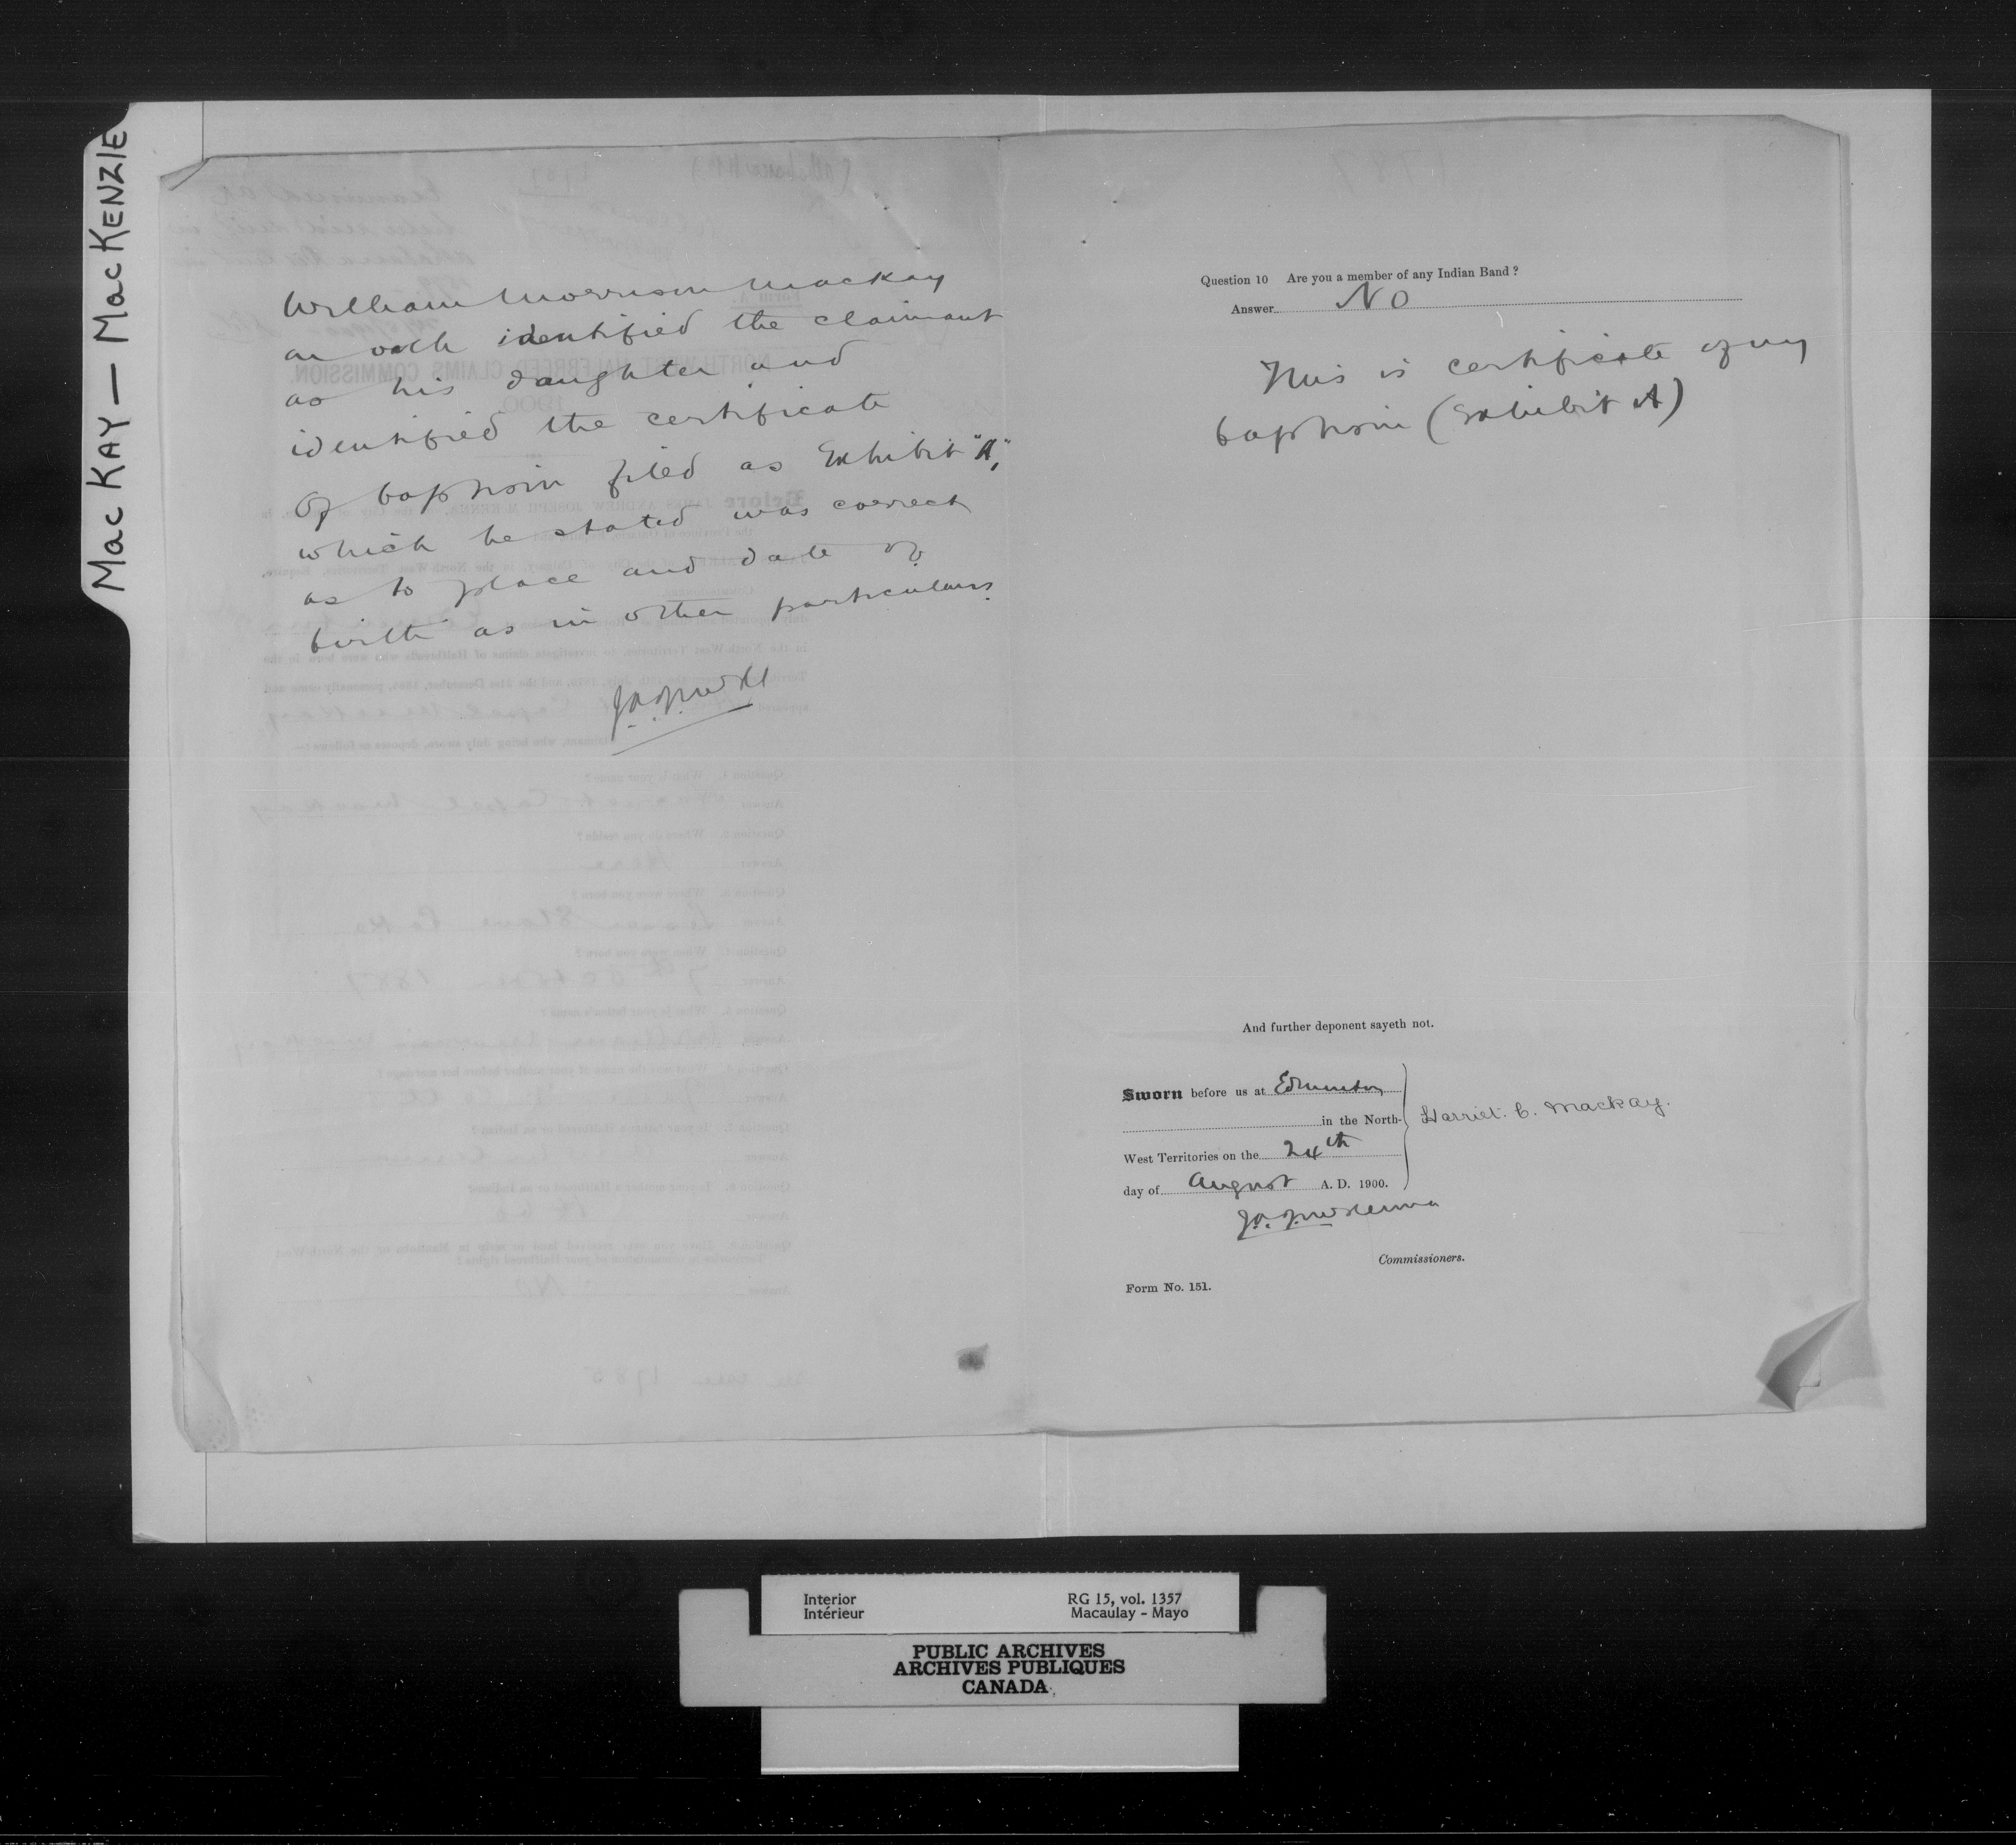 MacKAY — MacKENZIE
William Morrison Mackay
on oath identified the claimant
as his daughter and
identified the certificate
of baptism filed as Exhibit "A",
which he stated was correct
as to place and date of
birth as in other particulars.
J.A.J. McK
Question 10 Are you a member of any Indian Band?
Answer No
This is certificate of my
baptism (Exhibit A)
And further deponent sayeth not.
Sworn before us at Edmonton
in the North-
West Territories on the 24th
day of August A. D. 1900.
Harriet. C. Mackay.
J.A.J. McKenna
Commissioners.
Form No. 151.
Interior
Intérieur
RG 15, vol. 1357
Macaulay - Mayo
PUBLIC ARCHIVES
ARCHIVES PUBLIQUES
CANADA